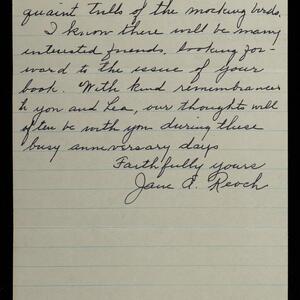 quaint trills of the mocking birds.
I know there will be many
interested friends, looking for-
ward to the issue of your
book. With kind remembrances
to you and Lea, our thoughts will
often be with you during these
busy anniversary days
Faithfully yours
Jane A. Reoch